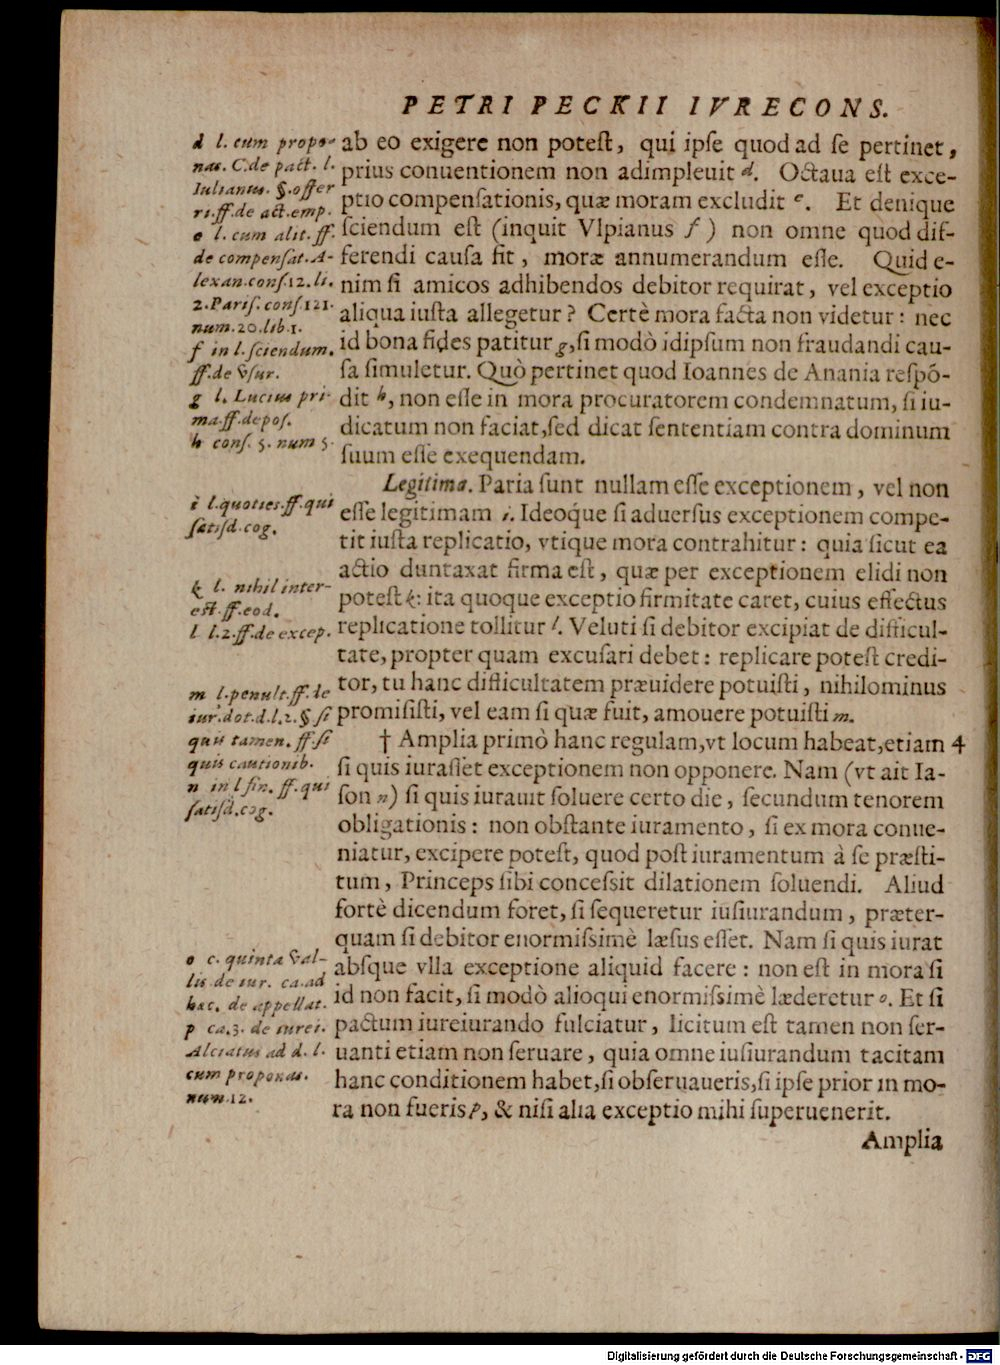 PETRI PECKII IVRECONS.
ab eo exigere non poteſt, qui ipſe quod ad ſe pertinet,
prius conuentionem non adimpleuit d. Octaua eſt exce-
ptio compenſationis, quæ moram excludit e. Et denique
ſciendum eſt (inquit Vlpianus f) non omne quod dif-
ferendi cauſa fit, moræ annumerandum eſſe. Quid e-
nim ſi amicos adhibendos debitor requirat, vel exceptio
aliqua iuſta allegetur? Certè mora facta non videtur: nec
id bona fides patitur g, ſi modò idipſum non fraudandi cau-
ſa ſimuletur. Quò pertinet quod Ioannes de Anania reſpō-
dit h, non eſſe in mora procuratorem condemnatum, ſi iu-
dicatum non faciat, ſed dicat ſententiam contra dominum
ſuum eſſe exequendam.
Legitima. Paria ſunt nullam eſſe exceptionem, vel non
eſſe legitimam i. Ideoque ſi aduerſus exceptionem compe-
tit iuſta replicatio, vtique mora contrahitur: quia ſicut ea
actio duntaxat firma eſt, quæ per exceptionem elidi non
poteſt k: ita quoque exceptio firmitate caret, cuius effectus
replicatione tollitur l. Veluti ſi debitor excipiat de difficul-
tate, propter quam excuſari debet: replicare poteſt credi-
tor, tu hanc difficultatem præuidere potuiſti, nihilominus
promiſiſti, vel eam ſi quæ fuit, amouere potuiſti m.
† Amplia primò hanc regulam, vt locum habeat, etiam 4
ſi quis iuraſſet exceptionem non opponere. Nam (vt ait Ia-
ſon n) ſi quis iurauit ſoluere certo die, ſecundum tenorem
obligationis: non obſtante iuramento, ſi ex mora conue-
niatur, excipere poteſt, quod poſt iuramentum à ſe præſti-
tum, Princeps ſibi conceſsit dilationem ſoluendi. Aliud
fortè dicendum foret, ſi ſequeretur iuſiurandum, præter-
quam ſi debitor enormiſsimè læſus eſſet. Nam ſi quis iurat
abſque vlla exceptione aliquid facere: non eſt in mora ſi
id non facit, ſi modò alioqui enormiſsimè læderetur o. Et ſi
pactum iureiurando fulciatur, licitum eſt tamen non ſer-
uanti etiam non ſeruare, quia omne iuſiurandum tacitam
hanc conditionem habet, ſi obſeruaueris, ſi ipſe prior in mo-
ra non fueris p, & niſi alia exceptio mihi ſuperuenerit.
Amplia
d l. cum propo-
nas. C. de pact. l.
Iulianus. §. offer
ri. ff. de act. emp.
e l. cum alit. ff.
de compenſat. A-
lexan. conſ. 12. li.
2. Pariſ. conſ. 121.
num. 20. lib. 1.
f in l. ſciendum.
ff. de vſur.
g l. Lucius pri-
ma. ff. depoſ.
h conſ. 5. num 5.
i l. quoties. ff. qui
ſatiſd. cog.
k l. nihil inter-
eſt. ff. eod.
l l. 2. ff. de excep.
m l. penult. ff. de
iur. dot. d. l. 2. § ſi
quis tamen. ff. ſi
quis cautionib.
n in l fin. ff. qui
ſatiſd. cog.
o c. quinta val-
lis de iur. ca. ad
hæc. de appellat.
p ca. 3. de iurei.
Alciatus ad d. l.
cum proponas.
num. 12.
Digitalisierung gefördert durch die Deutsche Forschungsgemeinschaft - DFG